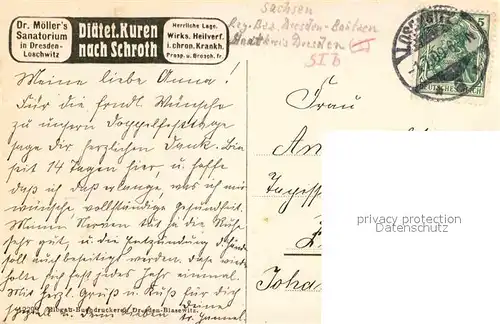 Dr. Möller's
Sanatorium
in Dresden-
Loschwitz
Diätet. Kuren
nach Schroth
Herrliche Lage.
Wirks. Heilverf.
i. chron. Krankh.
Prosp. u. Brosch. fr.
Sachsen
Reg. Bez. Dresden-Bautzen
Stadtkreis Dresden
5
DEUTSCHES REICH
Meine liebe Anna!
Für die frndl. Wünsche
zu unserm Doppelfesttage
sage Dir herzlichen Dank. Bin
seit 14 Tagen hier, u. hoffe
daß ich daß erlange was ich mir
wünsche, vollständige Gesundheit.
Meinen Nerven tut ja die Ruhe
sehr gut, u. die Entzündung
soll auch beseitigt werden.
ich fest jedes Jahr einmal.
Mit herzl. Gruß u. Kuß für Dich
Frau
An
Tagess
Joha
privacy protection
Albgau-Buchdruckerei, Dresden-Blasewitz.